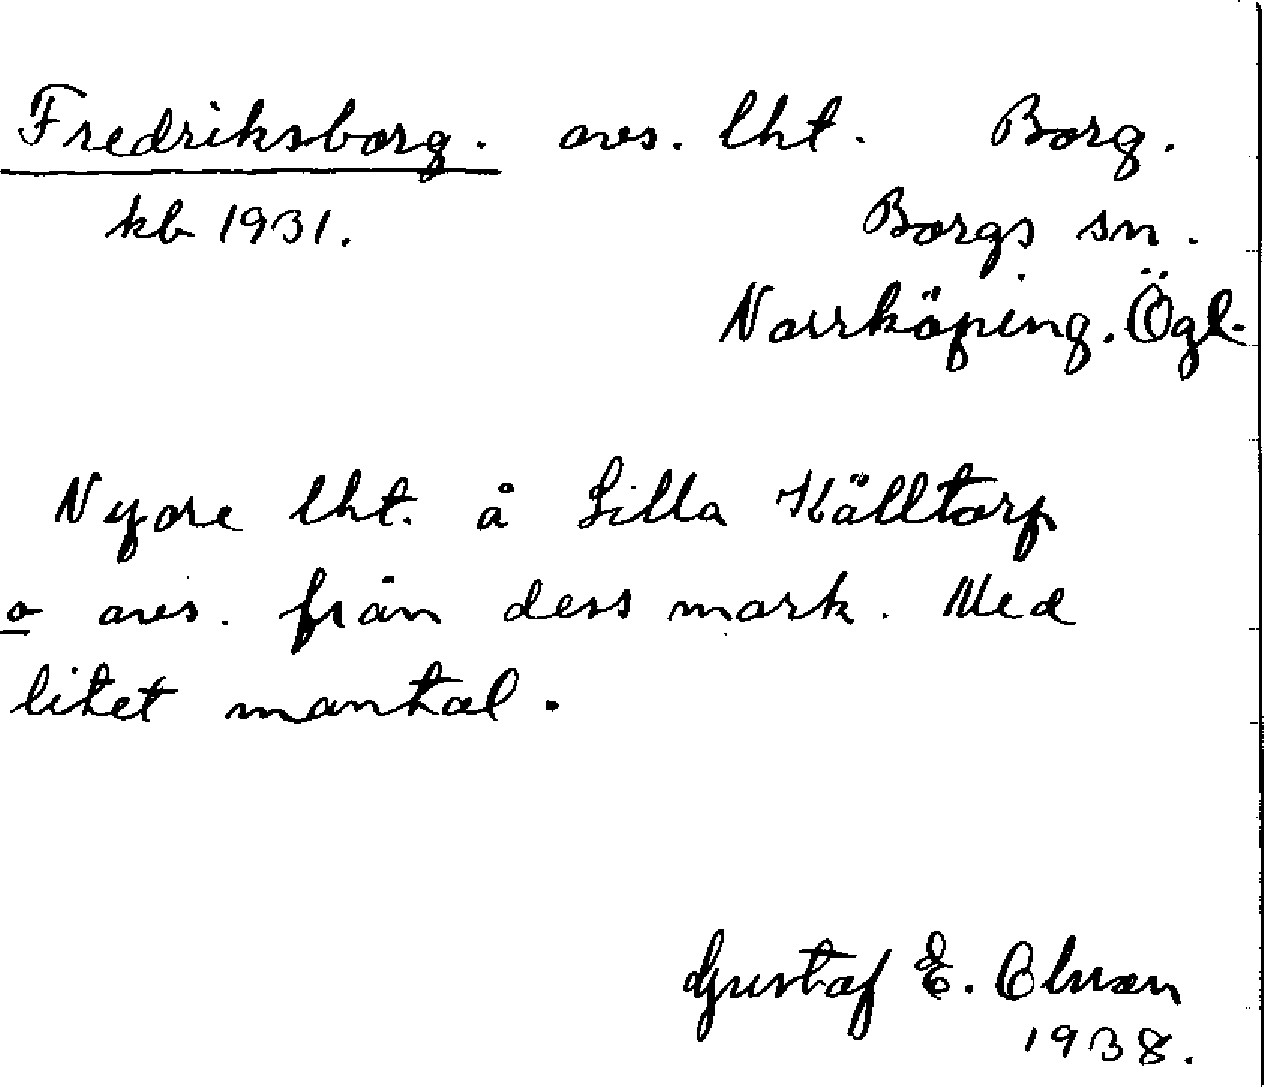 Fredriksborg. avs. lht. Borg.
kb 1931. Borgs sn.
Norrköping. Ögl.
Nyare lht. å Lilla Källtorp
o avs. från dess mark. Med
litet mantal.
Gustaf E. Olsson
1938.